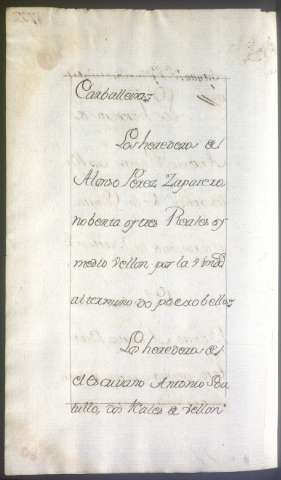 Carballeira
Los herederos de
Alonso Perez Zapatero
nobenta y tres Reales y
medio Vellon por la
al termino do
Los herederos de
el escrivano Antonio
dos Reales de vellon